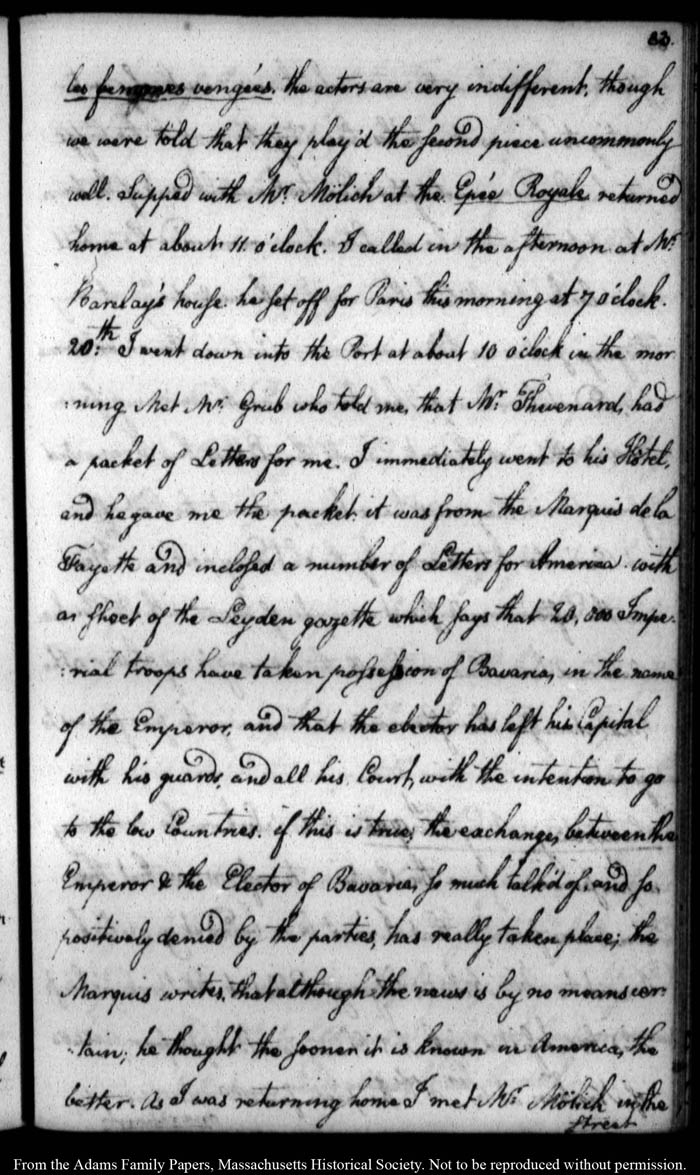 83.
les femmes vengées. the actors are very indifferent, though
we were told that they play'd the second piece uncommonly
well. Supped with Mr. Mölich at the Epée Royale returned
home at about 11 o'clock. I called in the afternoon at Mr.
Barclay's house. he set off for Paris this morning at 7 o'clock.
20th. I went down into the Port at about 10 o'clock in the mor
:ning Met Mr. Grub who told me, that Mr. Thevenard, had
a packet of Letters for me. I immediately went to his Hôtel,
and he gave me the packet. it was from the Marquis de la
Fayette and inclosed a number of Letters for America. with
a sheet of the Leyden gazette which says that 20,000 Impe:
:rial troops have taken possession of Bavaria, in the name
of the Emperor, and that the elector has left his Capital
with his guards, and all his Court, with the intention to go
to the low Countries. if this is true, the exchange, between the
Emperor & the Elector of Bavaria, so much talk'd of, and so
positively denied by the parties, has really taken place; the
Marquis writes, that although the news is by no means cer:
:tain; he thought the sooner it is known in America, the
better. As I was returning home I met Mr. Mölich in the
street
From the Adams Family Papers, Massachusetts Historical Society. Not to be reproduced without permission.